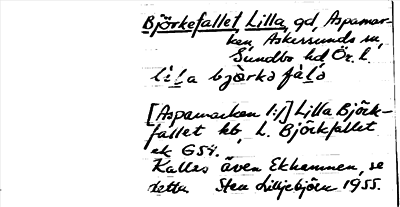 Björkefallet Lilla, gd, Aspamar-
ken, Askersunds sn,
Sundbo hd Ör. l.
lìl̲a bjö̀rkə fàl̲ə
[Aspamarken 1:/] Lilla Björk-
fallet hb, L. Björkfallet
ek G5v.
Kallas även Ekhammen, se
detta Sten Lilljebjörn 1955.